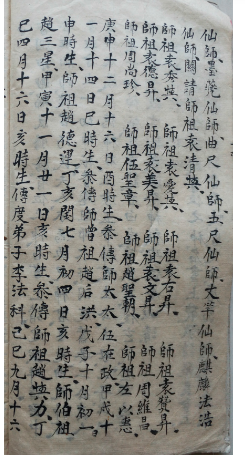 仙師墨斗仙師曲尺仙師五尺仙師大羊仙師麒麟法浩
仙師關請師祖袁清興
師祖袁秀興 師祖袁愛興 師祖袁石昇
師祖袁德昇 師祖袁美昇 師祖袁文昇 師祖袁贊昇
師祖周尚珍 師祖伍聖章 師祖趙聖朝 師祖周維昌
師祖左以惠
庚申十二月十六日酉時生叅傳師太太伍在政甲戌十
一月十四日巳時生叅傳師曾祖趙后洪戊子十月初一
申時生師祖趙德運丁亥閏七月初四日亥時生師伯祖
趙三星甲寅十一月廿一日亥時生叅傳師祖趙興力丁
巳四月十六日亥時生傳度弟子李法科己巳九月十六